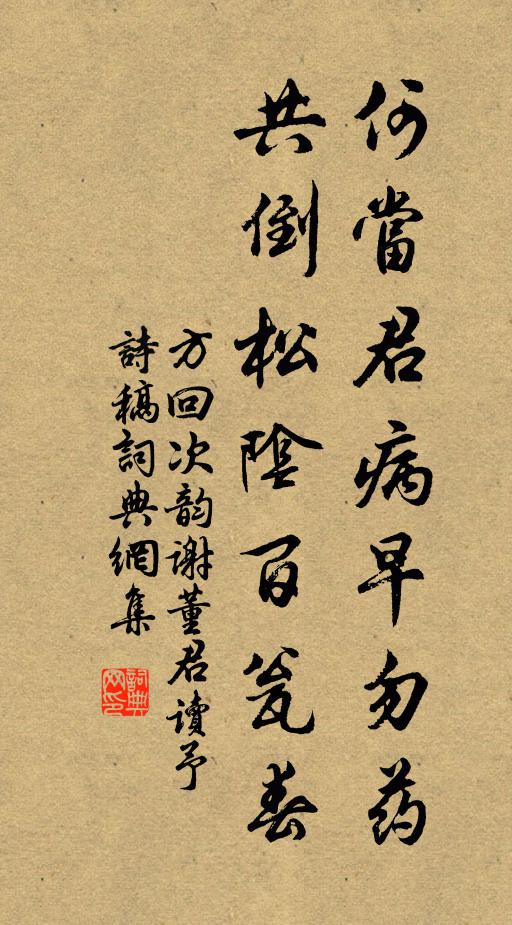 何當君病早勿药
共倒松陰百瓮春
方回次韵谢董君讀予
詩稿詞典網集
詞典网印